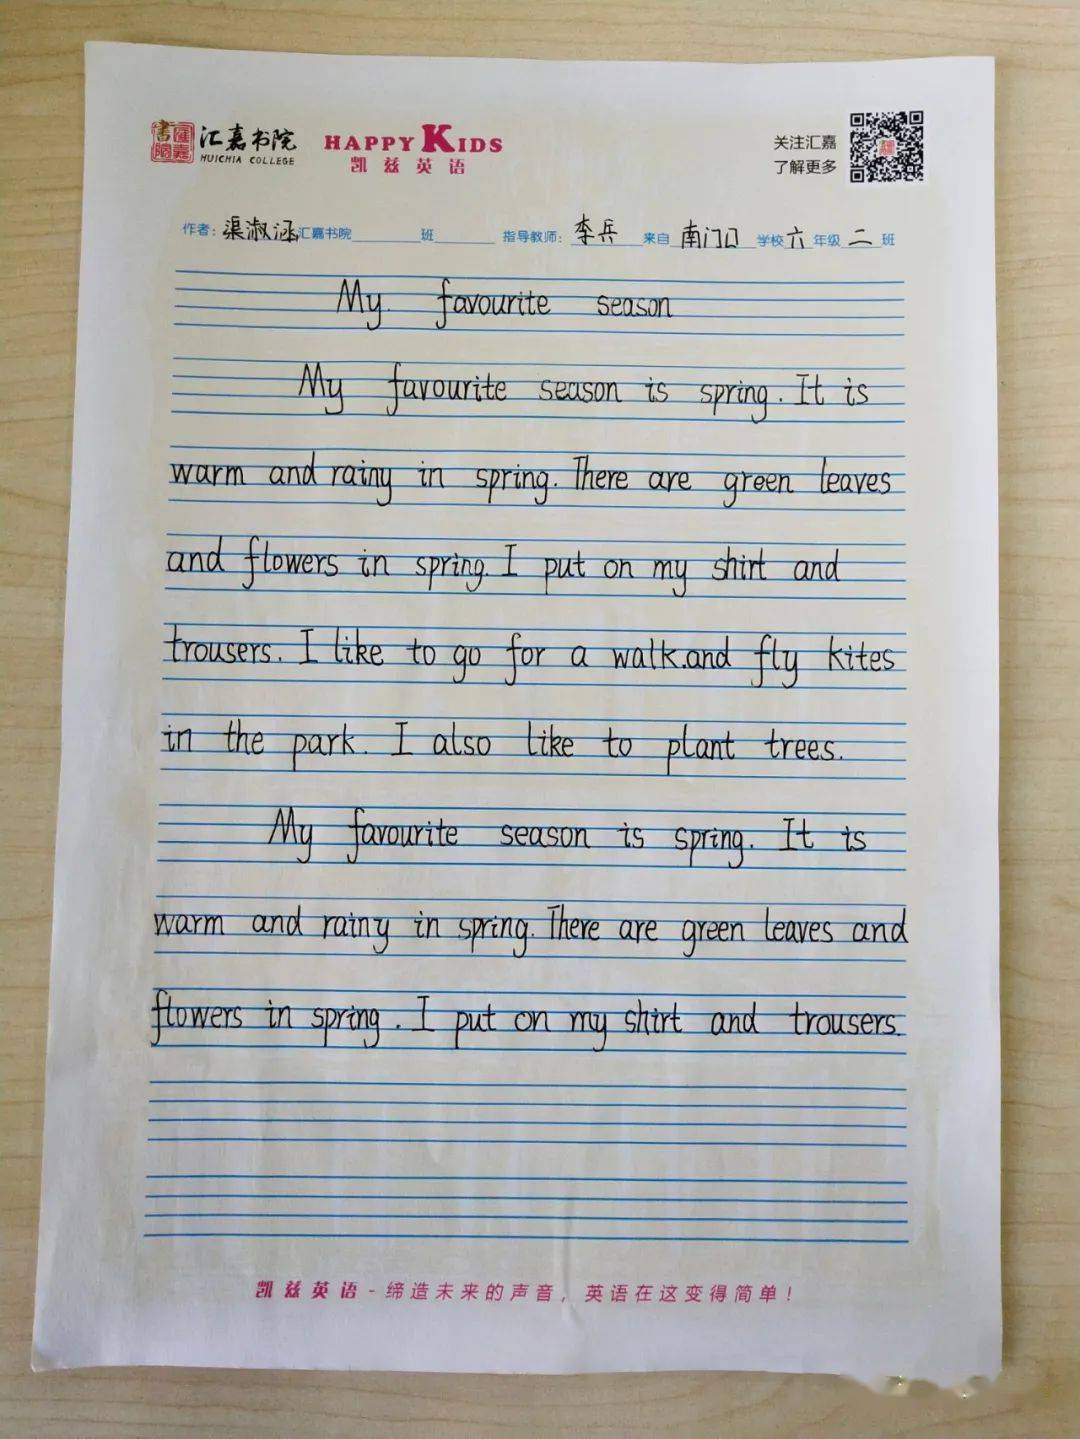 書院 匯嘉 汇嘉书院
HUICHIA COLLEGE
HAPPY KIDS
凯兹英语
关注汇嘉
了解更多
作者: 渠淑涵 汇嘉书院 班 指导教师: 李兵 来自 南门口 学校 六 年级 二 班
My favourite season
My favourite season is spring. It is
warm and rainy in spring. There are green leaves
and flowers in spring. I put on my shirt and
trousers. I like to go for a walk.and fly kites
in the park. I also like to plant trees.
My favourite season is spring. It is
warm and rainy in spring. There are green leaves and
flowers in spring. I put on my shirt and trousers.
凯兹英语-缔造未来的声音，英语在这变得简单！